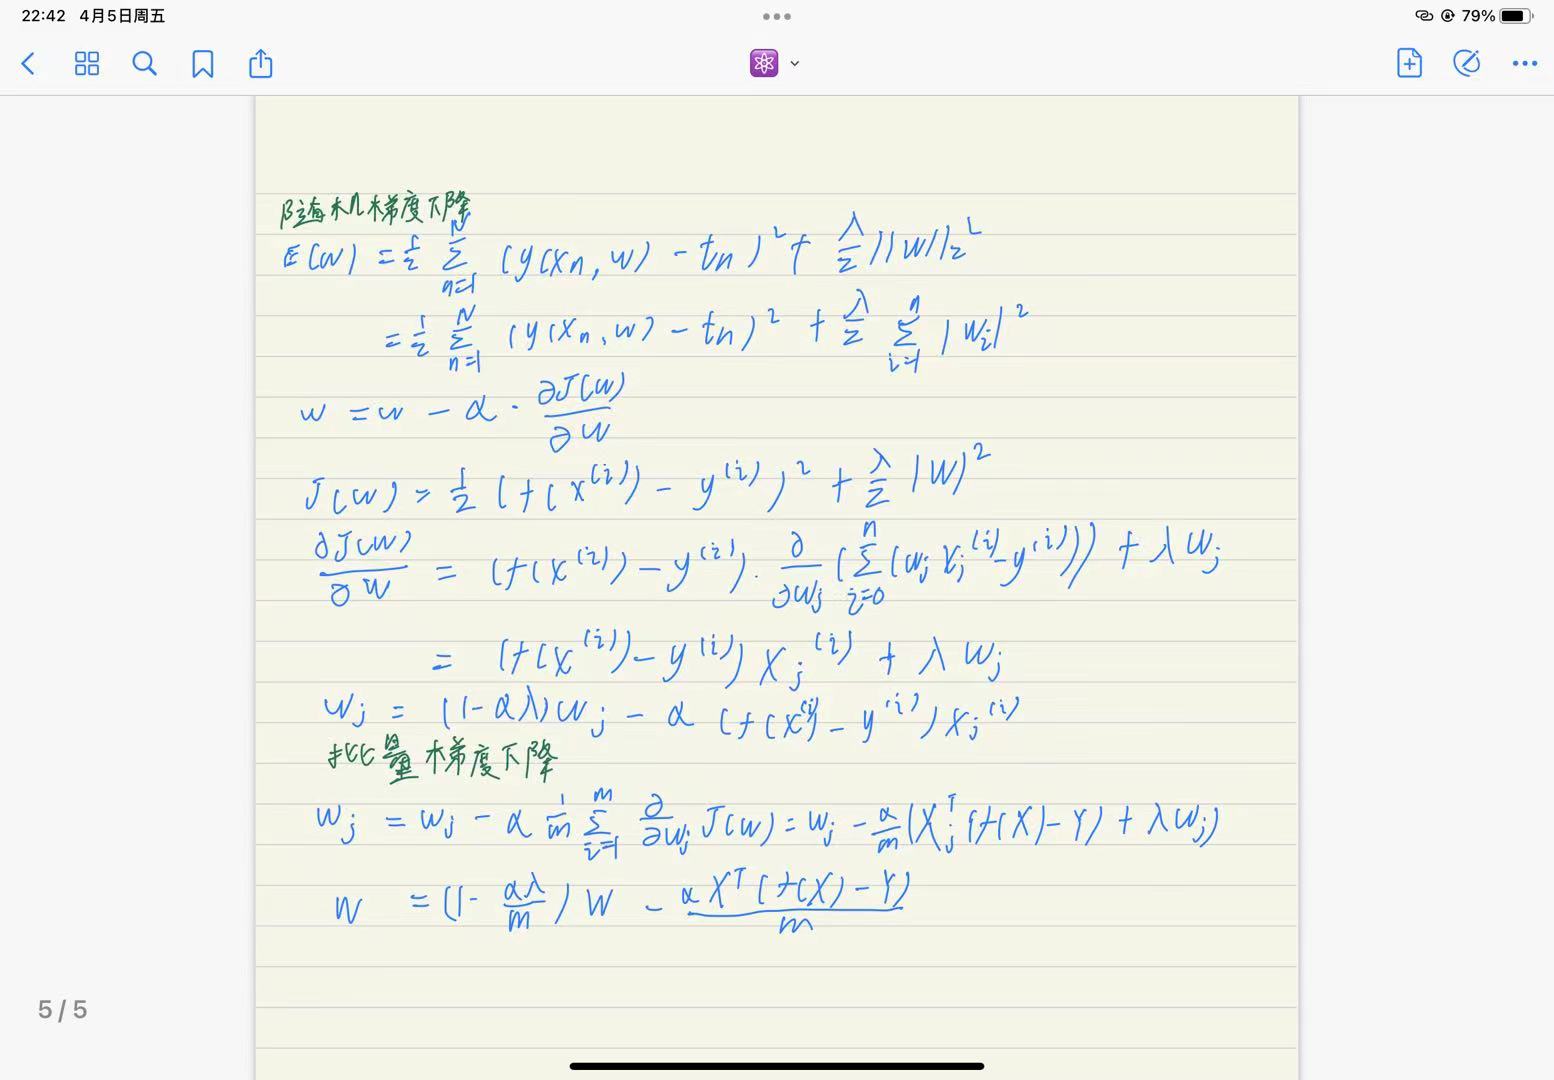 22:42 4月5日周五
79%
随机梯度下降
E(w) = 1/2 Σ_{n=1}^{N} (y(x_n, w) - t_n)^2 + λ/2 ||w||_2^2
= 1/2 Σ_{n=1}^{N} (y(x_n, w) - t_n)^2 + λ/2 Σ_{i=1}^{n} |w_i|^2
w = w - α · ∂J(w)/∂w
J(w) = 1/2 (f(x^{(i)}) - y^{(i)})^2 + λ/2 |w|^2
∂J(w)/∂w = (f(x^{(i)}) - y^{(i)}) · ∂/∂w_j (Σ_{i=0}^{n} (w_j x_j^{(i)} - y^{(i)})) + λ w_j
= (f(x^{(i)}) - y^{(i)}) x_j^{(i)} + λ w_j
w_j = (1 - αλ) w_j - α (f(x^{(i)}) - y^{(i)}) x_j^{(i)}
批量梯度下降
w_j = w_j - α 1/m Σ_{i=1}^{m} ∂/∂w_j J(w) = w_j - α/m (X_j^T (f(X) - Y) + λ w_j)
w = (1 - αλ/m) w - α X^T (f(X) - Y)/m
5 / 5